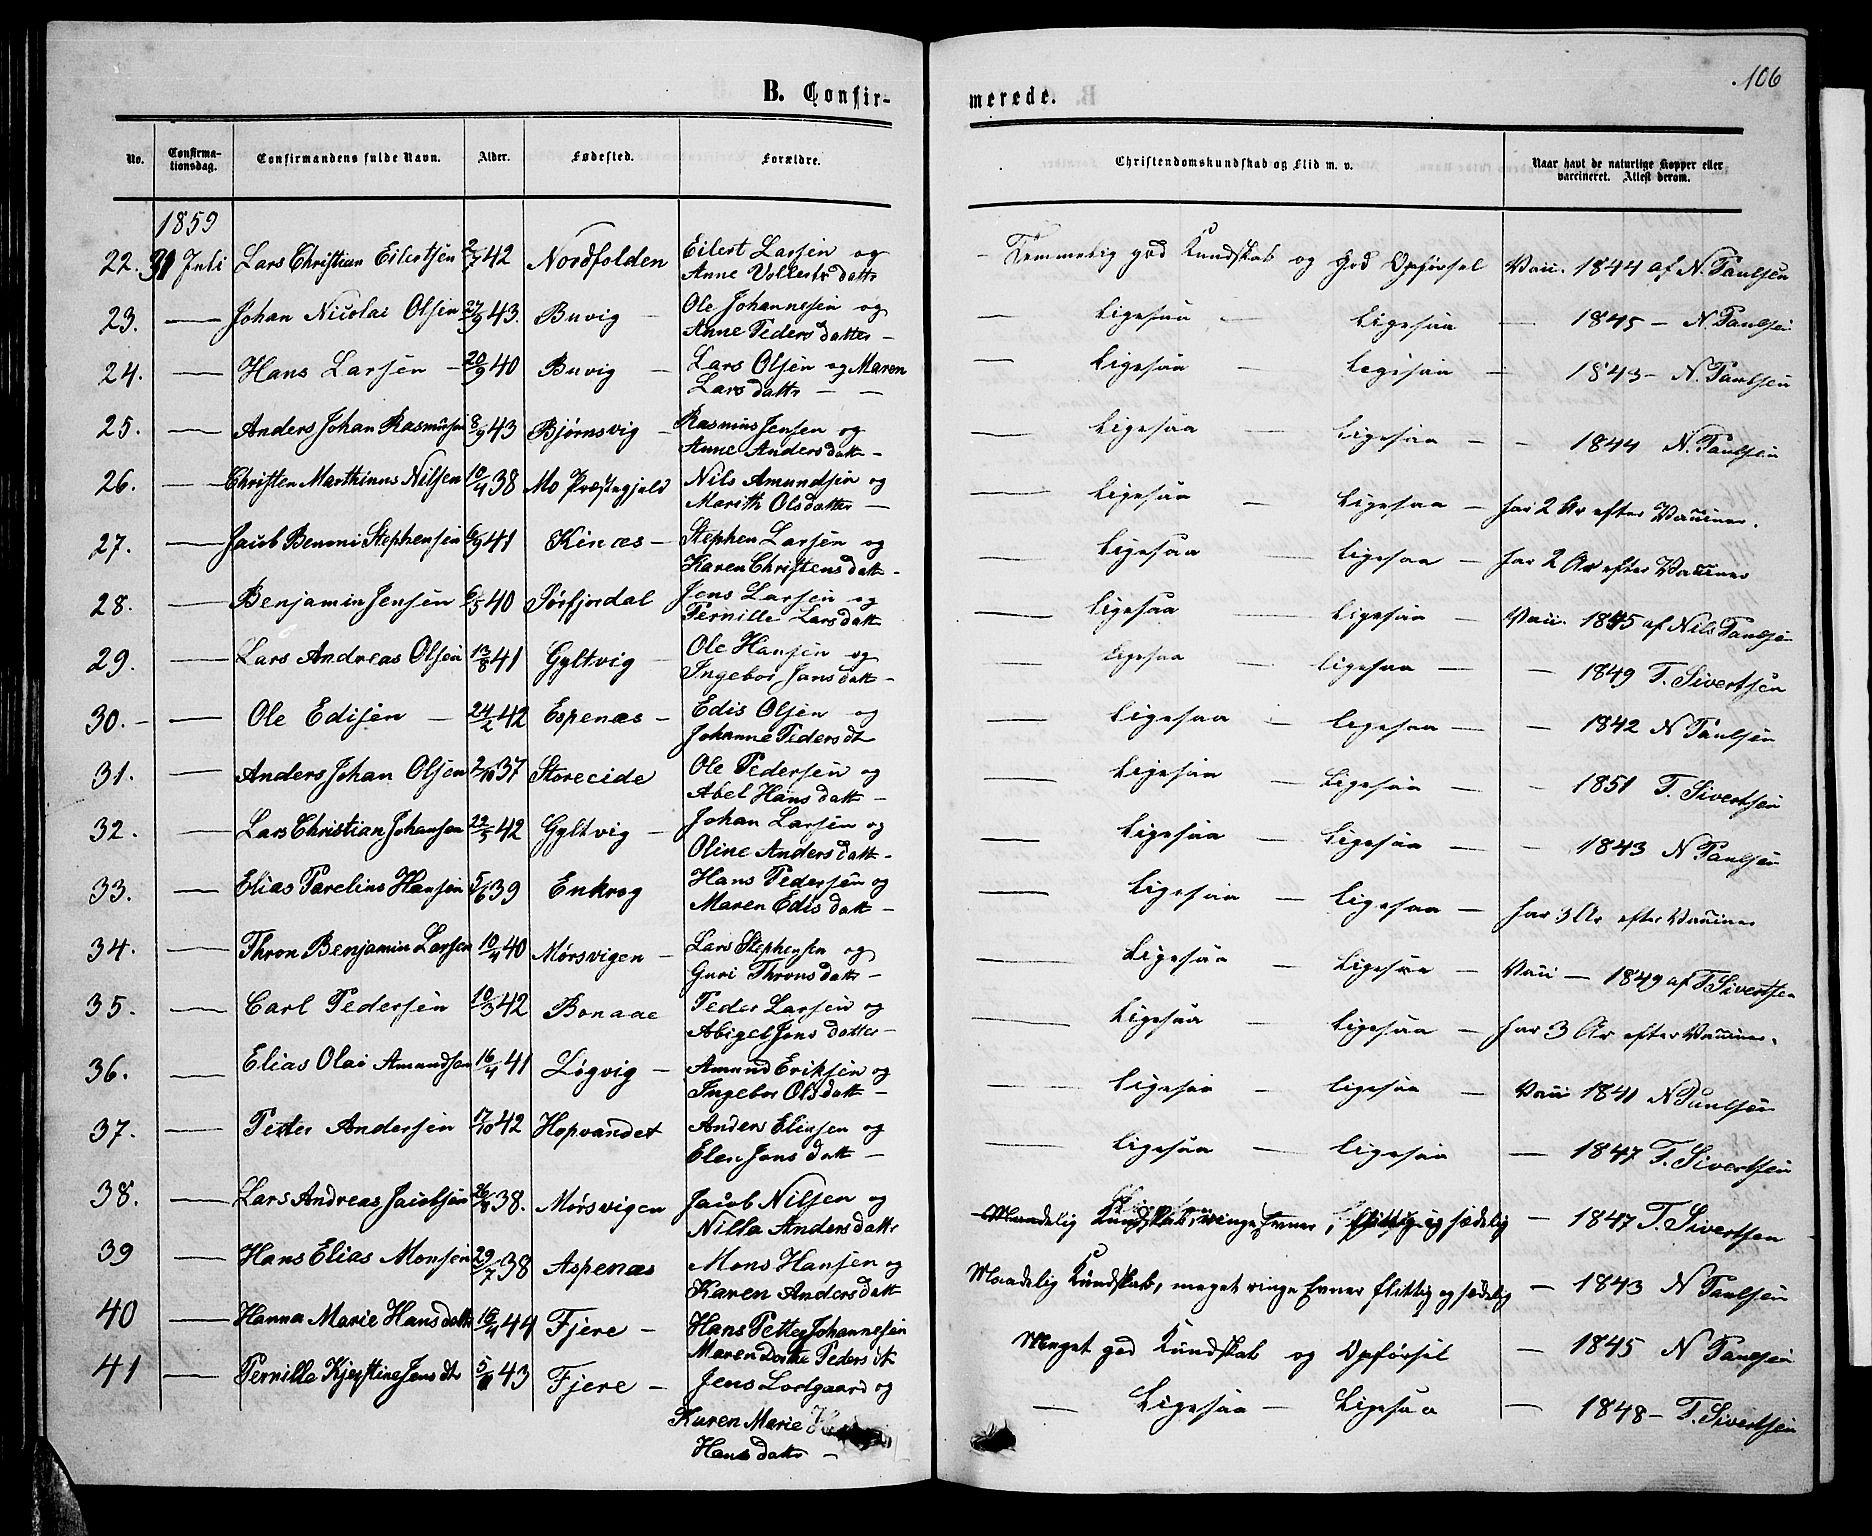 106
B. Confir-
merede.
No.
Confirma-
tionsdag.
Confirmandens fulde Navn.
Alder.
Fødested.
Forældre.
Christendomskundskab og Flid m. v.
Naar havt de naturlige Kopper eller
vaccineret. Attest derom.
1859
22. 31 Juli Lars Christian Eilertsen 2/7 42 Nordfolden Eilert Larsen og Temmelig god Kundskab og god Opførsel Vacc. 1844 af N. Paulsen
Anne Vollertsdattr
23. — Johan Nicolai Olsen 27/9 43. Buvig — Ole Johannesen og — Ligesaa — Ligesaa — 1845 — N Paulsen
Anne Pedersdatter —
24. — Hans Larsen — 20/9 40 Buvig — Lars Olsen og Maren — Ligesaa Ligesaa — 1843 — N. Paulsen
Larsdattr — —
25. — Anders Johan Rasmusen 8/9 43 Bjørnsvig — Rasmus Jensen og — Ligesaa — Ligesaa — — 1844 N. Paulsen
Anne Andersdatt —
26. — Christen Marthinus Nilsen 10/4 38 Mo Præstegjeld Nils Amundsen og — Ligesaa — Ligesaa — har 2 Ar efter Vacciner.
Marith Olsdatter —
27. — Jacob Benoni Stephensen 6/9 41 Kines — Stephen Larsen og — Ligesaa — Ligesaa — har 2 Ar efter Vacciner
Karen Christensdatt —
28. — Benjamin Jensen 6/5 40 Sørfjordal Jens Larsen og — Ligesaa — Ligesaa — Vacc. 1845 af Nils Paulsen
Pernille Larsdatt
29. — Lars Andreas Olsen 13/8 41 Gyltvig — Ole Hansen og — Ligesaa — Ligesaa — — 1849 T. Sivertsen
Ingebor Jansdatt —
30. — — Ole Edisen — 24/2 42 Espenæs — Edis Olsen — og — Ligesaa — Ligesaa — — 1842 N Paulsen
Johanne Pedersdt
31. — Anders Johan Olsen 2/10 37 Storeeide Ole Pedersen og — Ligesaa — Ligesaa — — 1851 T. Sivertsen
Abel Hansdatt —
32. — Lars Christian Johansen 22/5 42 Gyltvig — Johan Larsen og — Ligesaa — Ligesaa — — 1843 N Paulsen
Oline Andersdatt —
33. — Elias Parelius Hansen 5/6 39 Enkrog Hans Pedersen og — Ligesaa — Ligesaa — har 3 Ar efter Vacciner
Maren Edisdatt —
34. — Thron Benjamin Larsen 10/4 40 Mørsvigen — Lars Stephensen og — Ligesaa — Ligesaa — Vacc — 1849 af T Sivertsen
Guri Thronsdatt —
35. — Carl Pedersen 10/3 42 Bonaae Peder Larsen og — Ligesaa — Ligesaa — har 3 Ar efter Vacciner.
Abigel Jonsdatter —
36. — Elias Olai Amundsen 16/4 41 Løgvig — Amund Eriksen og — Ligesaa — Ligesaa — Vacc 1841 N Paulsen
Ingebor Olsdatt —
37. — Petter Andersen 17/10 42 Hopvandet Anders Eliasen og — Ligesaa — Ligesaa — 1847 T. Sivertsen
Elen Jonsdatt —
38. — Lars Andreas Jacobsen 26/8 38. Mørsvigen Jacob Nilsen og Maadelig Kundskab, ringe Evner, flittig og sædelig — 1847 T. Sivertsen
Nilla Andersdattr
39 — Hans Elias Monsen 29/7 38 Aspenæs Mons Hansen og Maadelig Kundskab, meget ringe Evner flittig og sædelig — 1843 N Paulsen
Karen Andersdatt
40 — Hanna Marie Hansdattr 16/4 44 Fjere — Hans Petter Johannesen Meget god Kundskab og Opførsel — 1845 N Paulsen
Maren Dorthe Pedersdt
41 — Pernilla Kjerstine Jensdt 5/11 43 Fjere — Jens Lodgaard og — Ligesaa — Ligesaa — 1848 — T. Sivertsen
Karen Marie
Hansdattr —